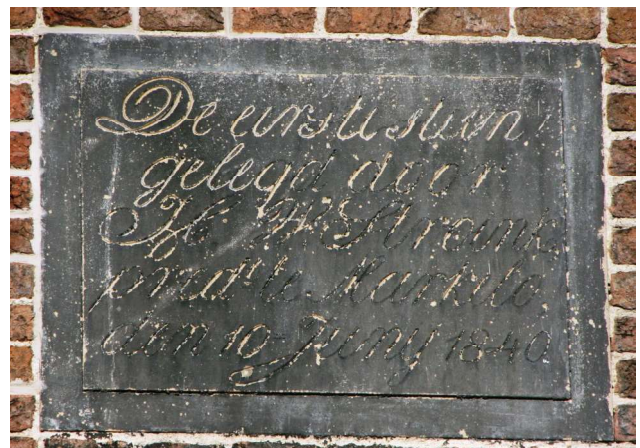 De eerste steen
gelegd door
H.
predt. te Markelo
den 10 Juny 1840